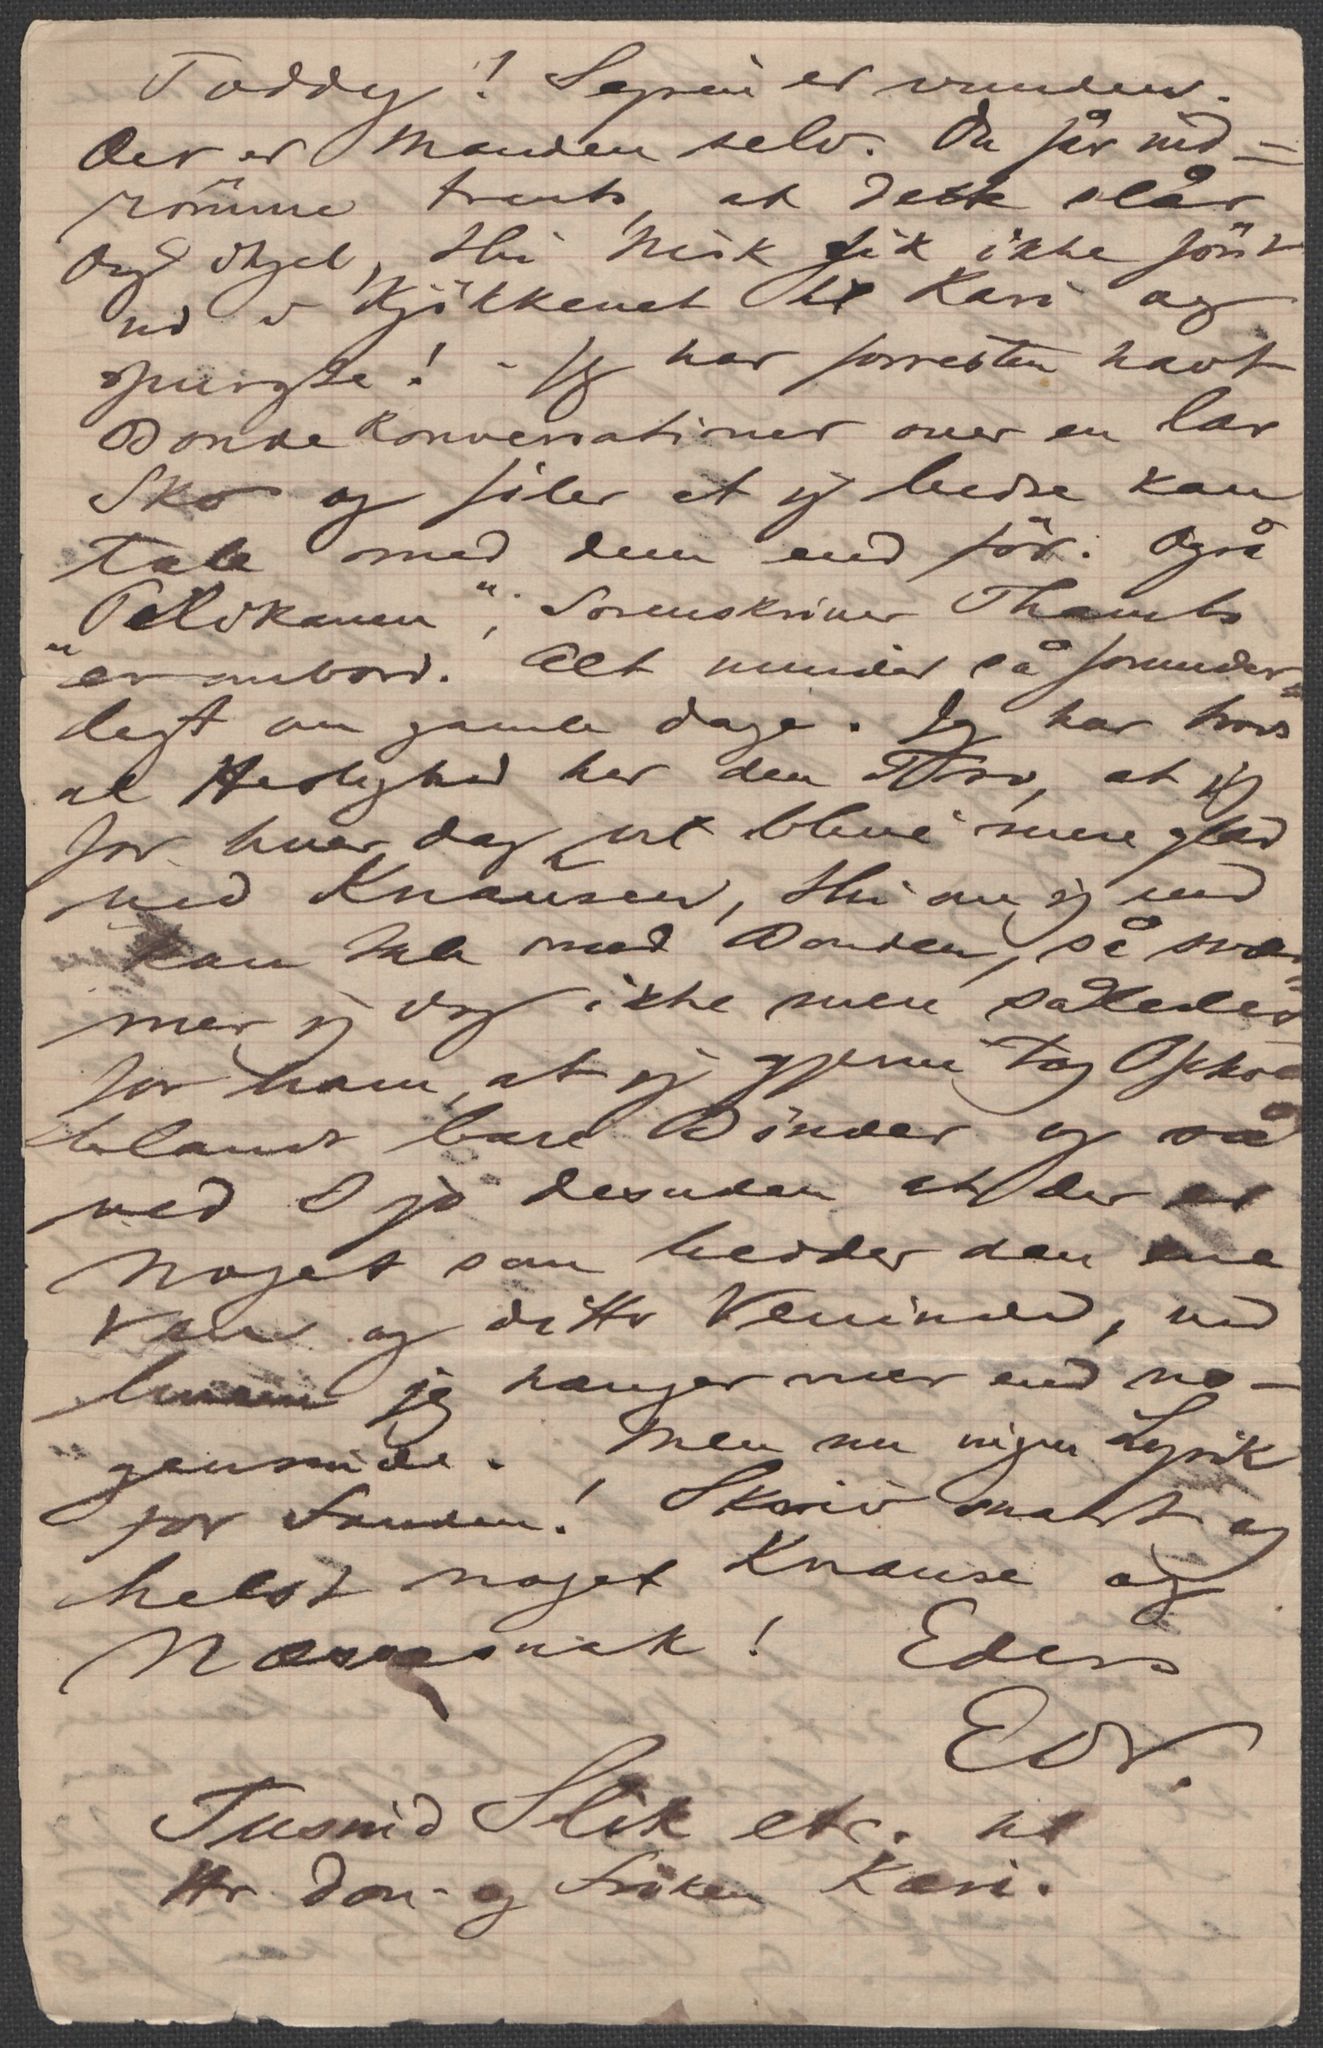 Toddy! Seiren er vunden.
Der er Manden selv. Du får ind=
römme trods, at dette slår
dog thi Nisk fik ikke först
ud i Kjökkenet til Kari og
spurgte! - Jeg har forresten havt
Bondekonversationer over en lav
Sko og föler at jeg bedre kan
tale med dem end för. Også
"Pelikanen", Sorenskriver Thambs
er ombord. Alt minder så forunder=
ligt om gamle dage. Jeg har trods
al Herlighed her den Tro, at jeg
for hver dag vil blive mere glad
ved Knausen, thi om jeg end
kan tale med Bonden, så svær=
mer jeg dog ikke mere således
for ham, at jeg gjerne tog Ophold
blandt bare Bönder og så
ved I jo desuden at der er
Noget som hedder den ene
Ven og ditto Veninde, ved
hvem jeg hænger mer end no-
gensinde. Men nu ingen Lyrik
for Fanden! Skriv snart og
helst noget Knause og
Næssesnak! Eders
EdV.
Tusind Slik etc. til
Hr. Don- og Fröken Kari.